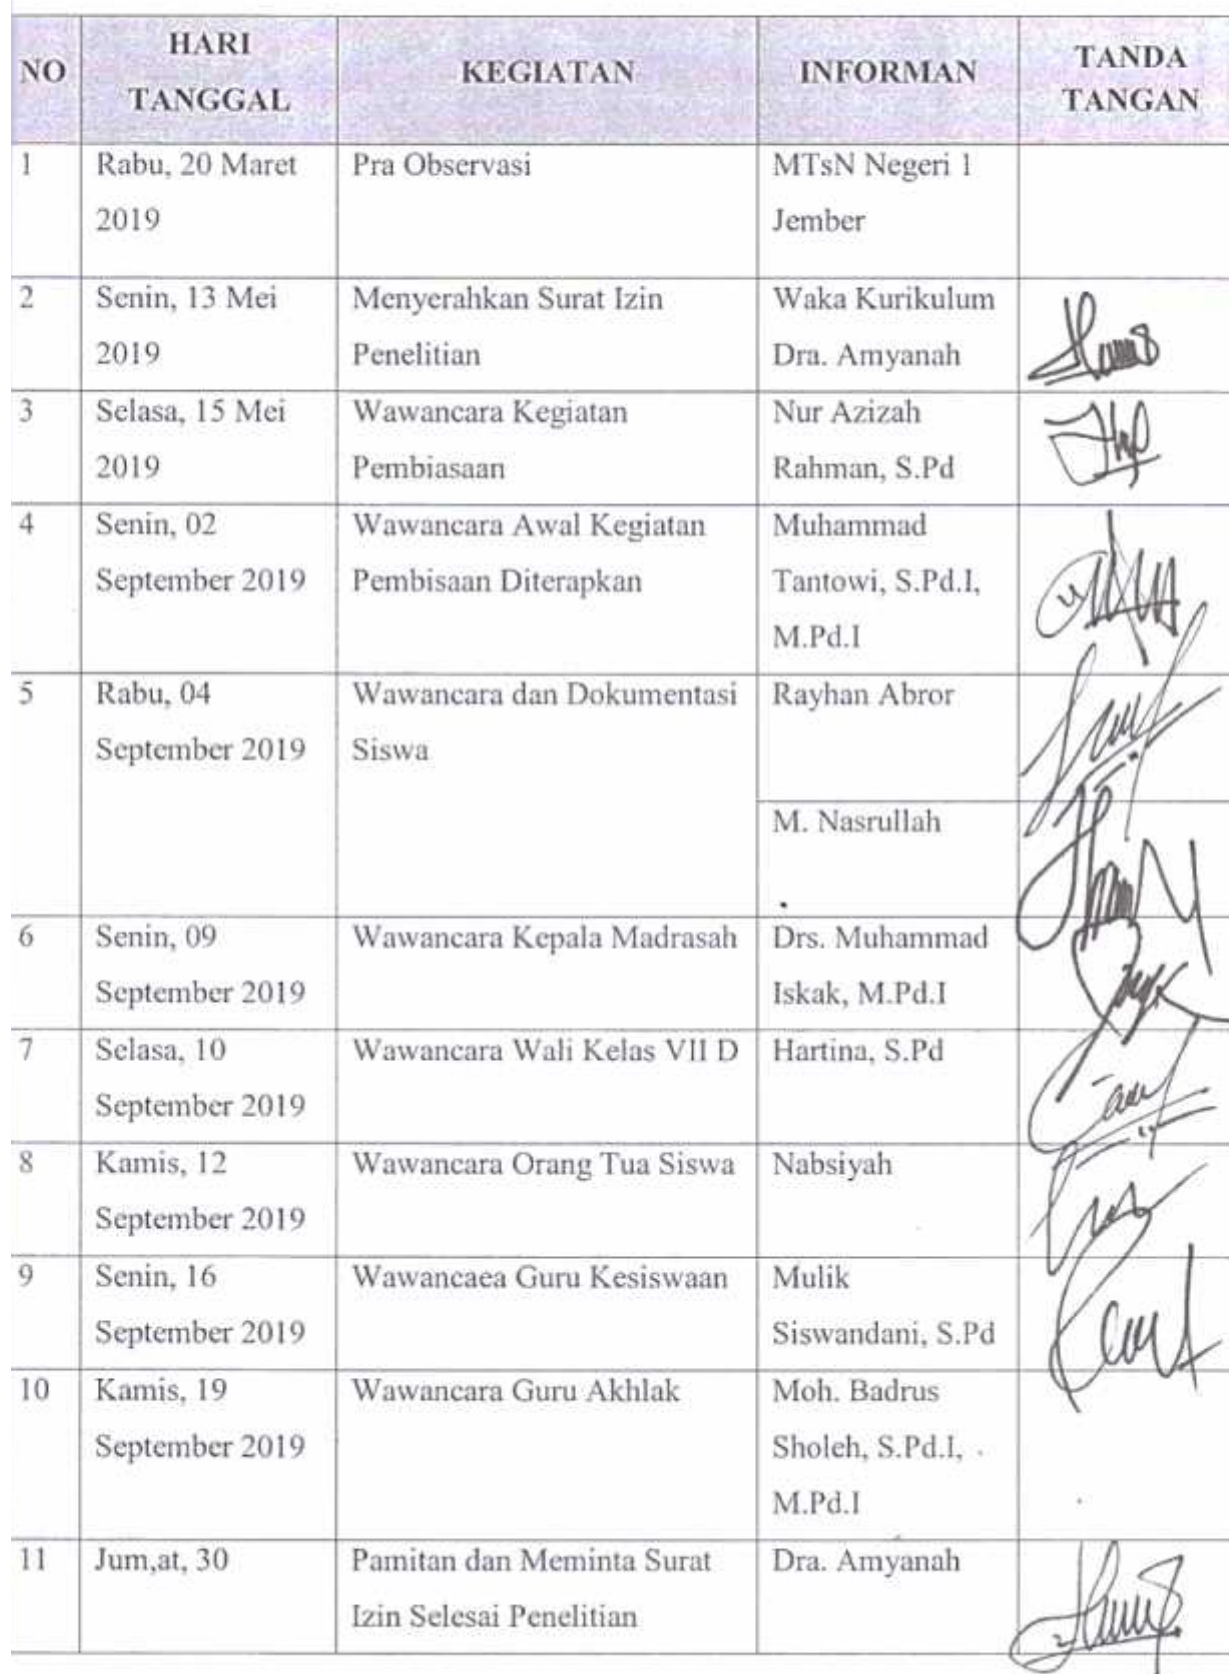 NO
HARI
TANGGAL
KEGIATAN
INFORMAN
TANDA
TANGAN
1
Rabu, 20 Maret
2019
Pra Observasi
MTsN Negeri 1
Jember
2
Senin, 13 Mei
2019
Menyerahkan Surat Izin
Penelitian
Waka Kurikulum
Dra. Amyanah
3
Selasa, 15 Mei
2019
Wawancara Kegiatan
Pembiasaan
Nur Azizah
Rahman, S.Pd
4
Senin, 02
September 2019
Wawancara Awal Kegiatan
Pembisaan Diterapkan
Muhammad
Tantowi, S.Pd.I,
M.Pd.I
5
Rabu, 04
September 2019
Wawancara dan Dokumentasi
Siswa
Rayhan Abror
M. Nasrullah
6
Senin, 09
September 2019
Wawancara Kepala Madrasah
Drs. Muhammad
Iskak, M.Pd.I
7
Selasa, 10
September 2019
Wawancara Wali Kelas VII D
Hartina, S.Pd
8
Kamis, 12
September 2019
Wawancara Orang Tua Siswa
Nabsiyah
9
Senin, 16
September 2019
Wawancaea Guru Kesiswaan
Mulik
Siswandani, S.Pd
10
Kamis, 19
September 2019
Wawancara Guru Akhlak
Moh. Badrus
Sholeh, S.Pd.I,
M.Pd.I
11
Jum,at, 30
Pamitan dan Meminta Surat
Izin Selesai Penelitian
Dra. Amyanah